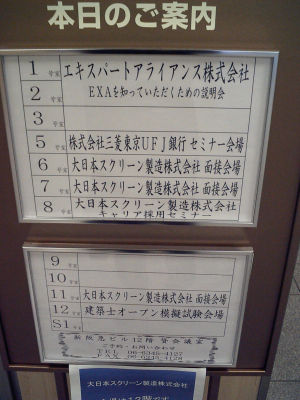 本日のご案内
1号室 エキスパートアライアンス株式会社
2号室 EXAを知っていただくための説明会
3号室
5号室 株式会社三菱東京UFJ銀行 セミナー会場
6号室 大日本スクリーン製造株式会社 面接会場
7号室 大日本スクリーン製造株式会社 面接会場
8号室 大日本スクリーン製造株式会社
キャリア採用セミナー
9号室
10号室
11号室 大日本スクリーン製造株式会社 面接会場
12号室 建築士オープン模擬試験会場
S1号室
新阪急ビル12階貸会議室
ご予約・お問い合わせ
TEL 06-6345-4127
FAX 06-6345-4128
大日本スクリーン製造株式会社